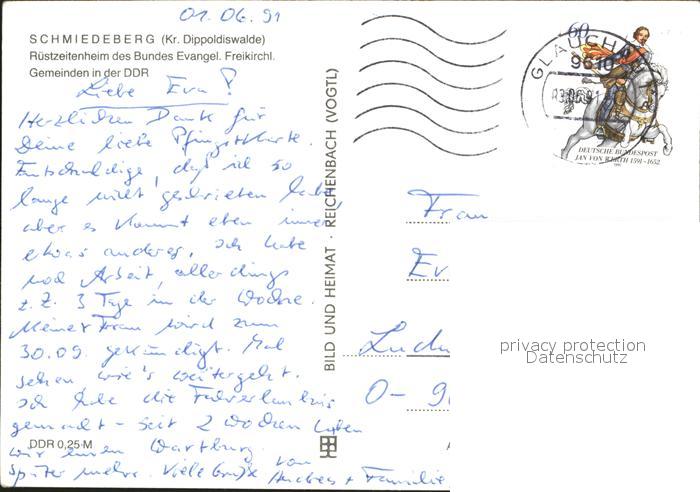 01.06.91
SCHMIEDEBERG (Kr. Dippoldiswalde)
Rüstzeitenheim des Bundes Evangel. Freikirchl.
Gemeinden in der DDR
Liebe Eva!
Herzlichen Dank für
Deine liebe Pfingstkarte.
Entschuldige, daß ich so
lange nicht geschrieben habe,
aber es kommt eben immer
etwas anderes. Ich habe
noch Arbeit, allerdings
z.Z. 3 Tage in der Woche.
Meiner Frau wird zum
30.09. gekündigt. Mal
sehen wie's weitergeht.
Ich habe die Fahrerlaubnis
gemacht - seit 2 Wochen haben
wir einen Wartburg.
Später mehr. Viele Grüße von
Andreas + Familie
DDR 0,25 M
BILD UND HEIMAT · REICHENBACH (VOGTL)
60
GLAUCHAU
9610
DEUTSCHE BUNDESPOST
JAN VON WERTH 1591-1652
Frau
Ev
Lud
O- 9
privacy protection
Datenschutz